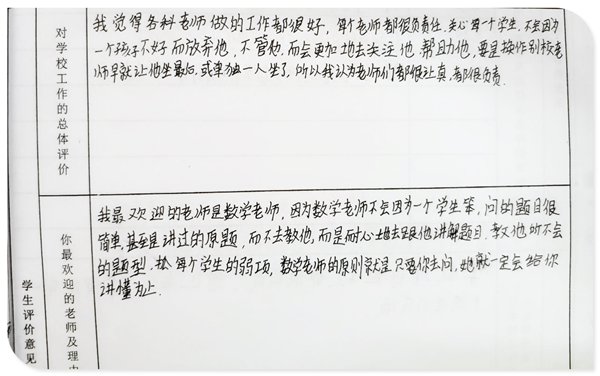 对学校工作的总体评价
我觉得各科老师做的工作都很好，每个老师都很负责任，关心每一个学生，不会因为
一个孩子不好而放弃他，不管他，而会更加地去关注他，帮助他，要是换作别校老
师早就让他坐最后，或单独一人坐了，所以我认为老师们都很认真，都很负责。
学生评价意见
你最欢迎的老师及理由
我最欢迎的老师是数学老师，因为数学老师不会因为一个学生笨，问的题目很
简单，甚至是讲过的原题，而不去教他，而是耐心地去跟他讲解题目，教他所不会
的题型，找每个学生的弱项，数学老师的原则就是只要你去问，她就一定会给你
讲懂为止。